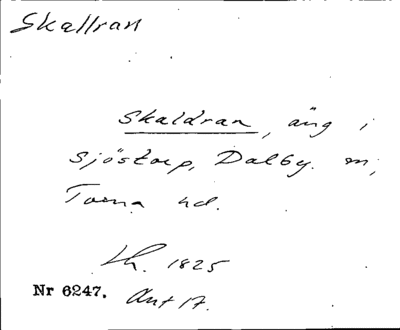 Skallran
Skaldran, äng i
Sjöstorp, Dalby. sn,
Torna hd.
Lh. 1825
Nr 6247. Ant 17.